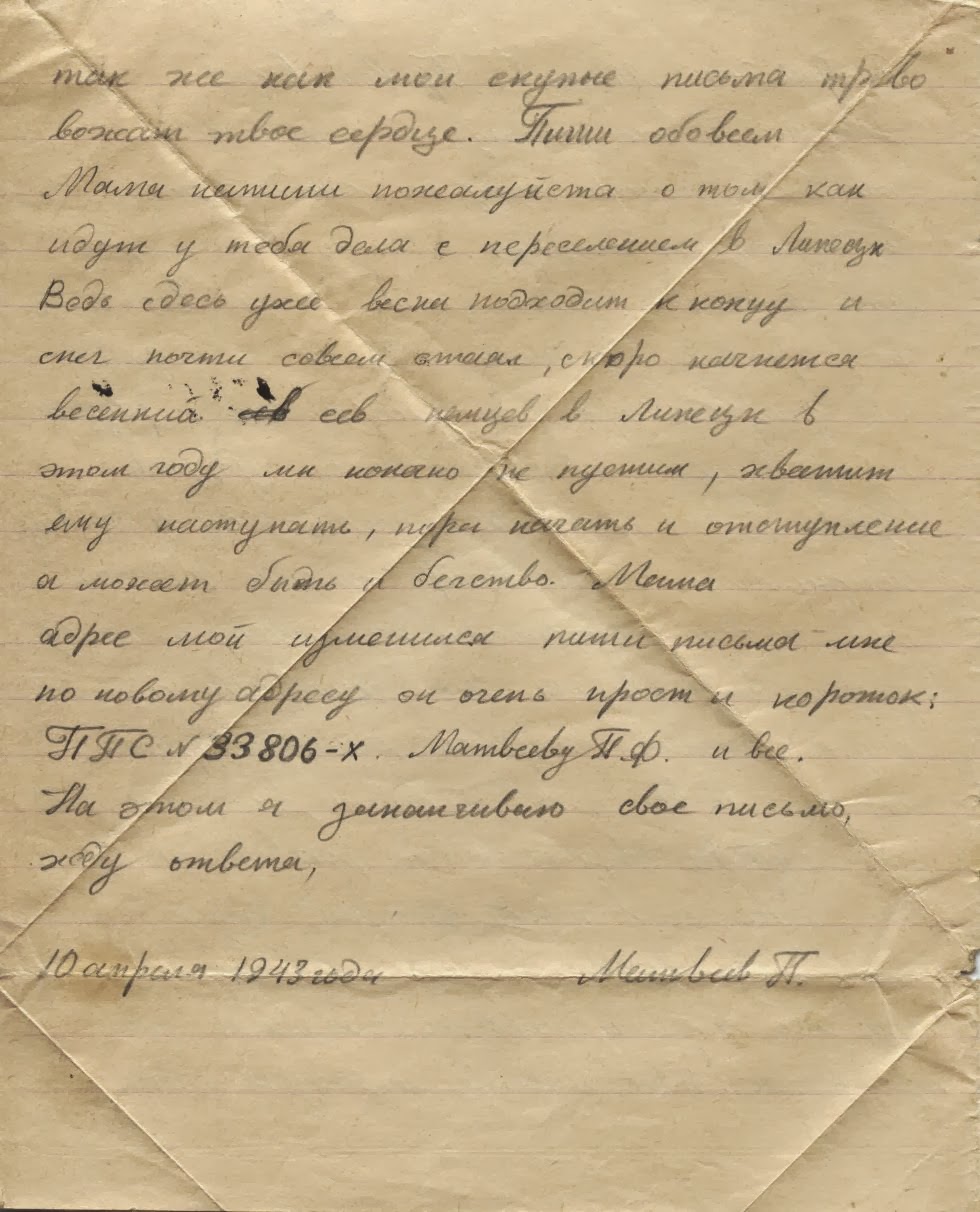 так же как мои скупые письма трево
вожат твое сердце. Пиши обовсем
Мама напиши пожалуйста о том как
идут у тебя дела с переселением в Липецк
Ведь здесь уже весна подходит к концу и
снег почти совсем стаял, скоро начнется
весенний сев немцев в Липецк в
этом году мы конено не пустим, хватит
ему наступать, пора начать и отступление
а может быть и бегство. Мама
адрес мой изменился пиши письма мне
по новому адресу он очень прост и короток:
ППС № 33806-х. Матвееву П.Ф. и все.
На этом я заканчиваю свое письмо,
жду ответа,
10 апреля 1943 года Матвеев П.